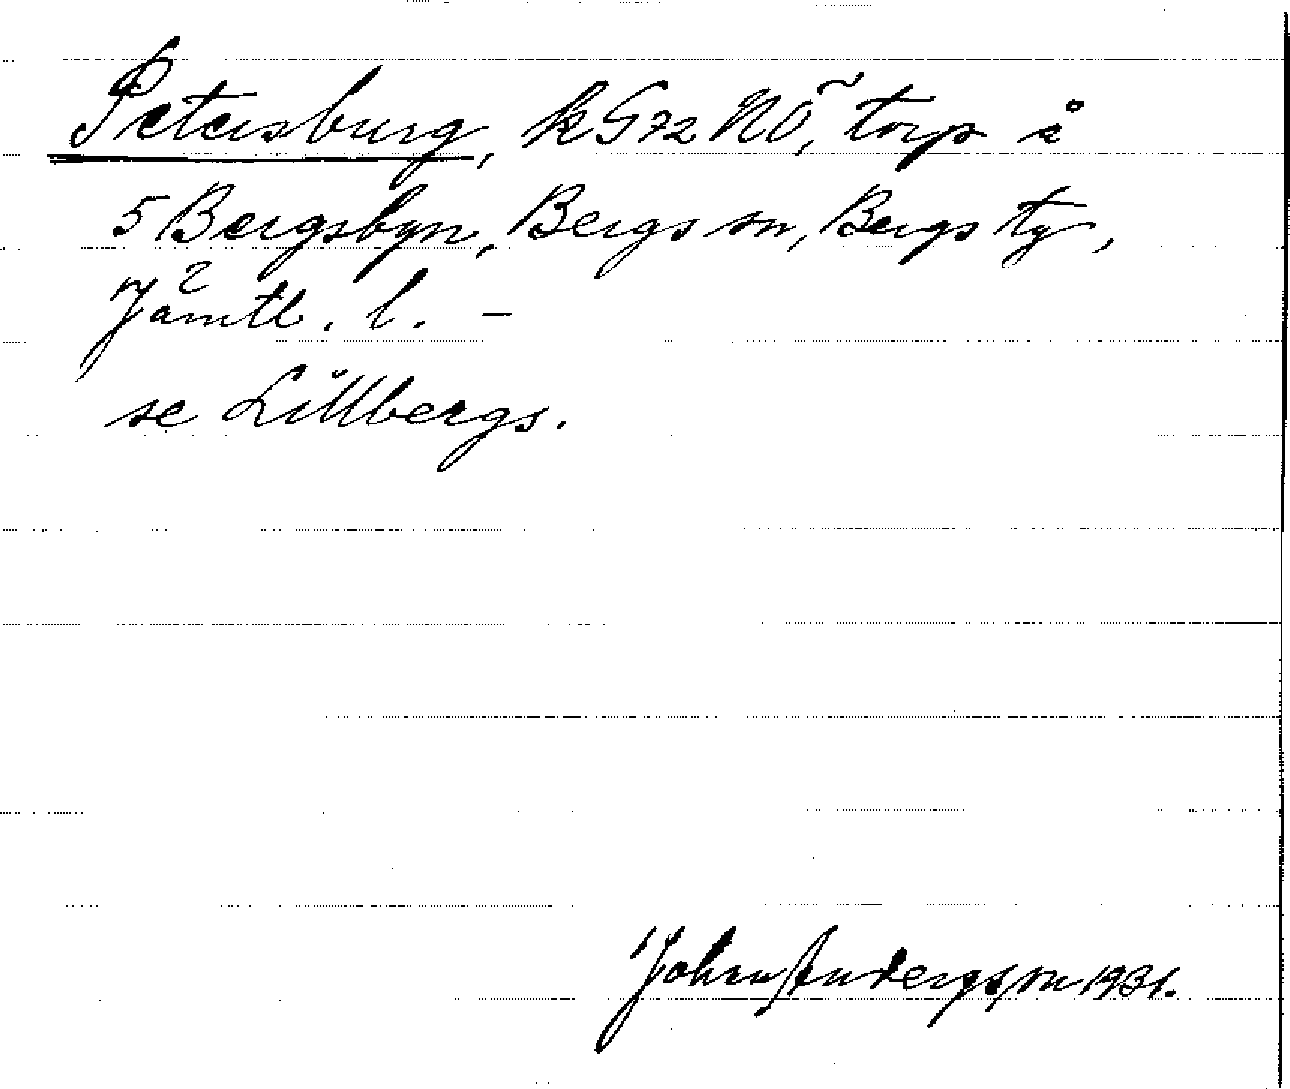 Petersburg, k G72 NÖ, torp å
5 Bergsbyn, Bergs sn, Bergs tg,
Jämtl. l. –
se Lillbergs.
John Andersson 1931.